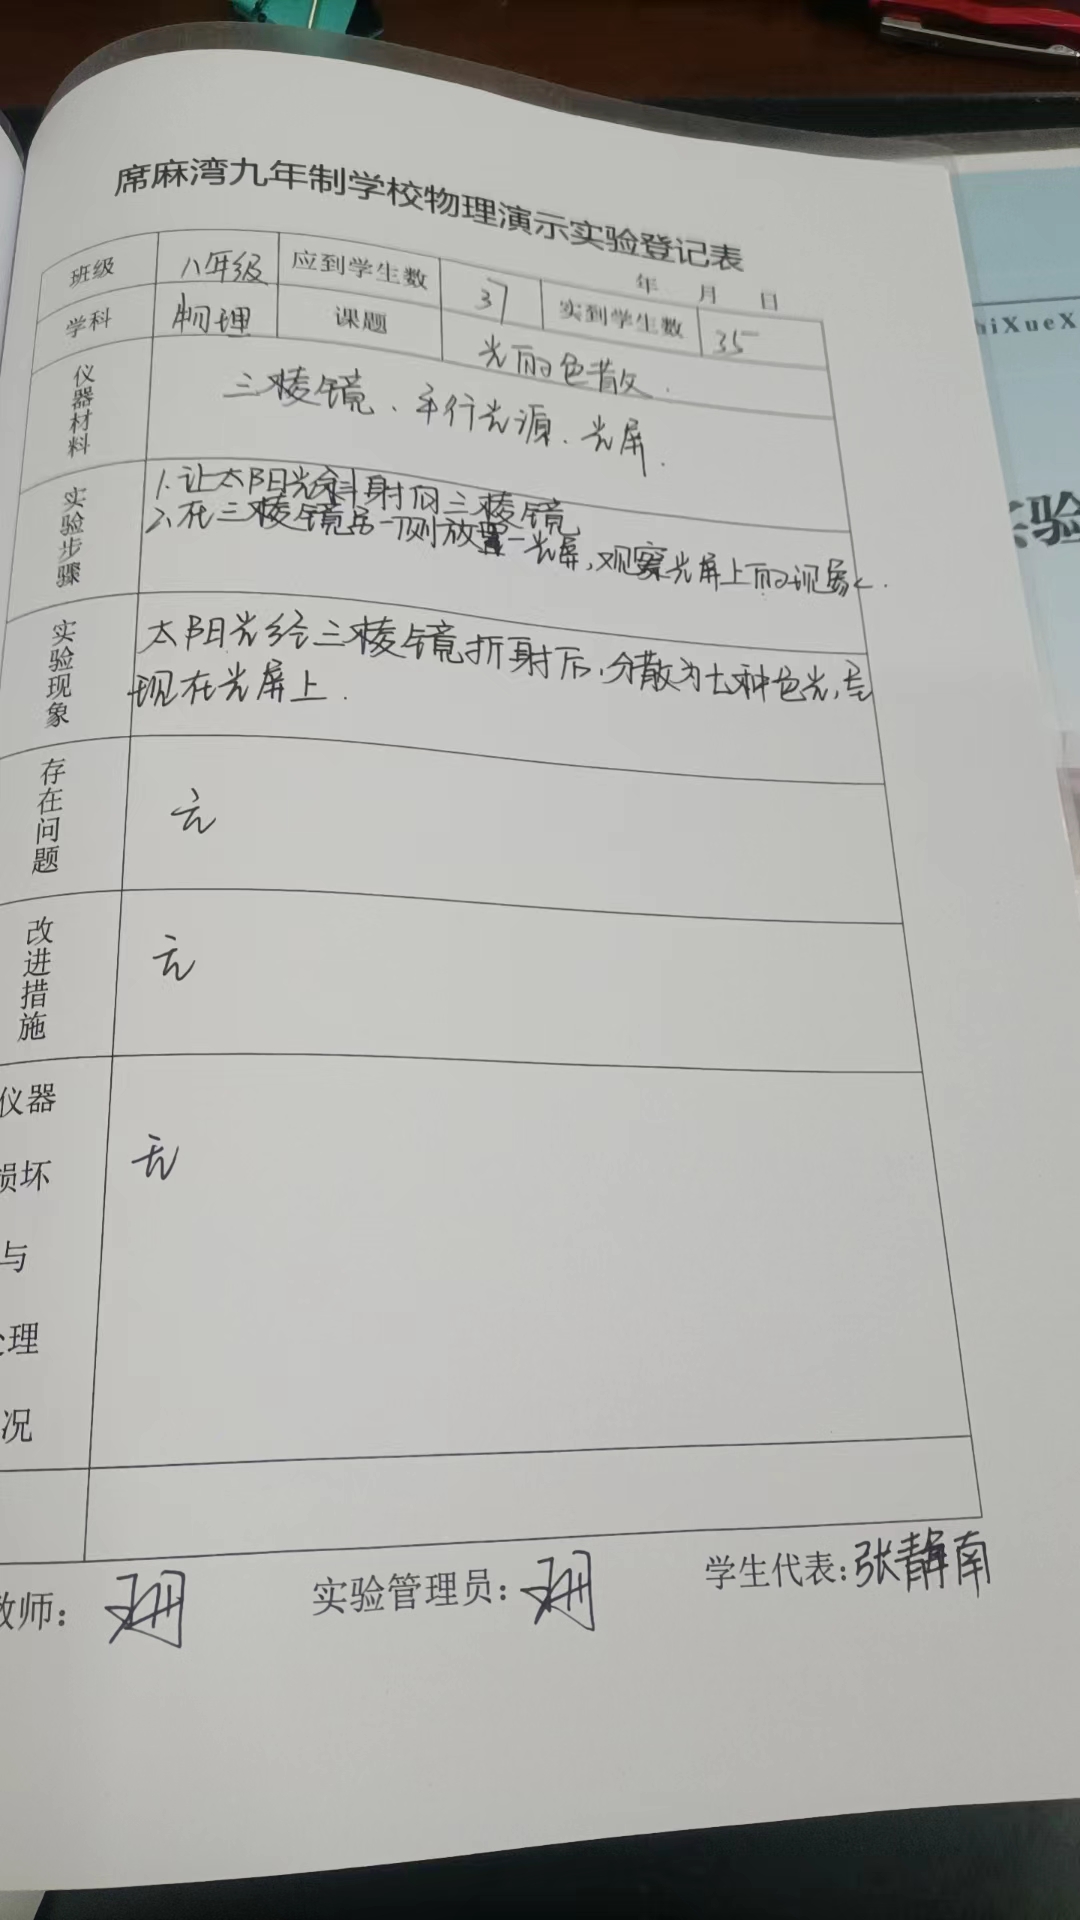 席麻湾九年制学校物理演示实验登记表
年 月 日
班级 八年级 应到学生数 37 实到学生数 35
学科 物理 课题 光的色散.
仪器材料 三棱镜、平行光源、光屏.
实验步骤 1.让太阳光斜射向三棱镜
2.在三棱镜另一侧放置一光屏,观察光屏上的现象.
实验现象 太阳光经三棱镜折射后,分散为七种色光,呈
现在光屏上.
存在问题 无
改进措施 无
仪器
损坏 无
与
处理
况
教师: 实验管理员: 学生代表:张静南
hiXueX
实验